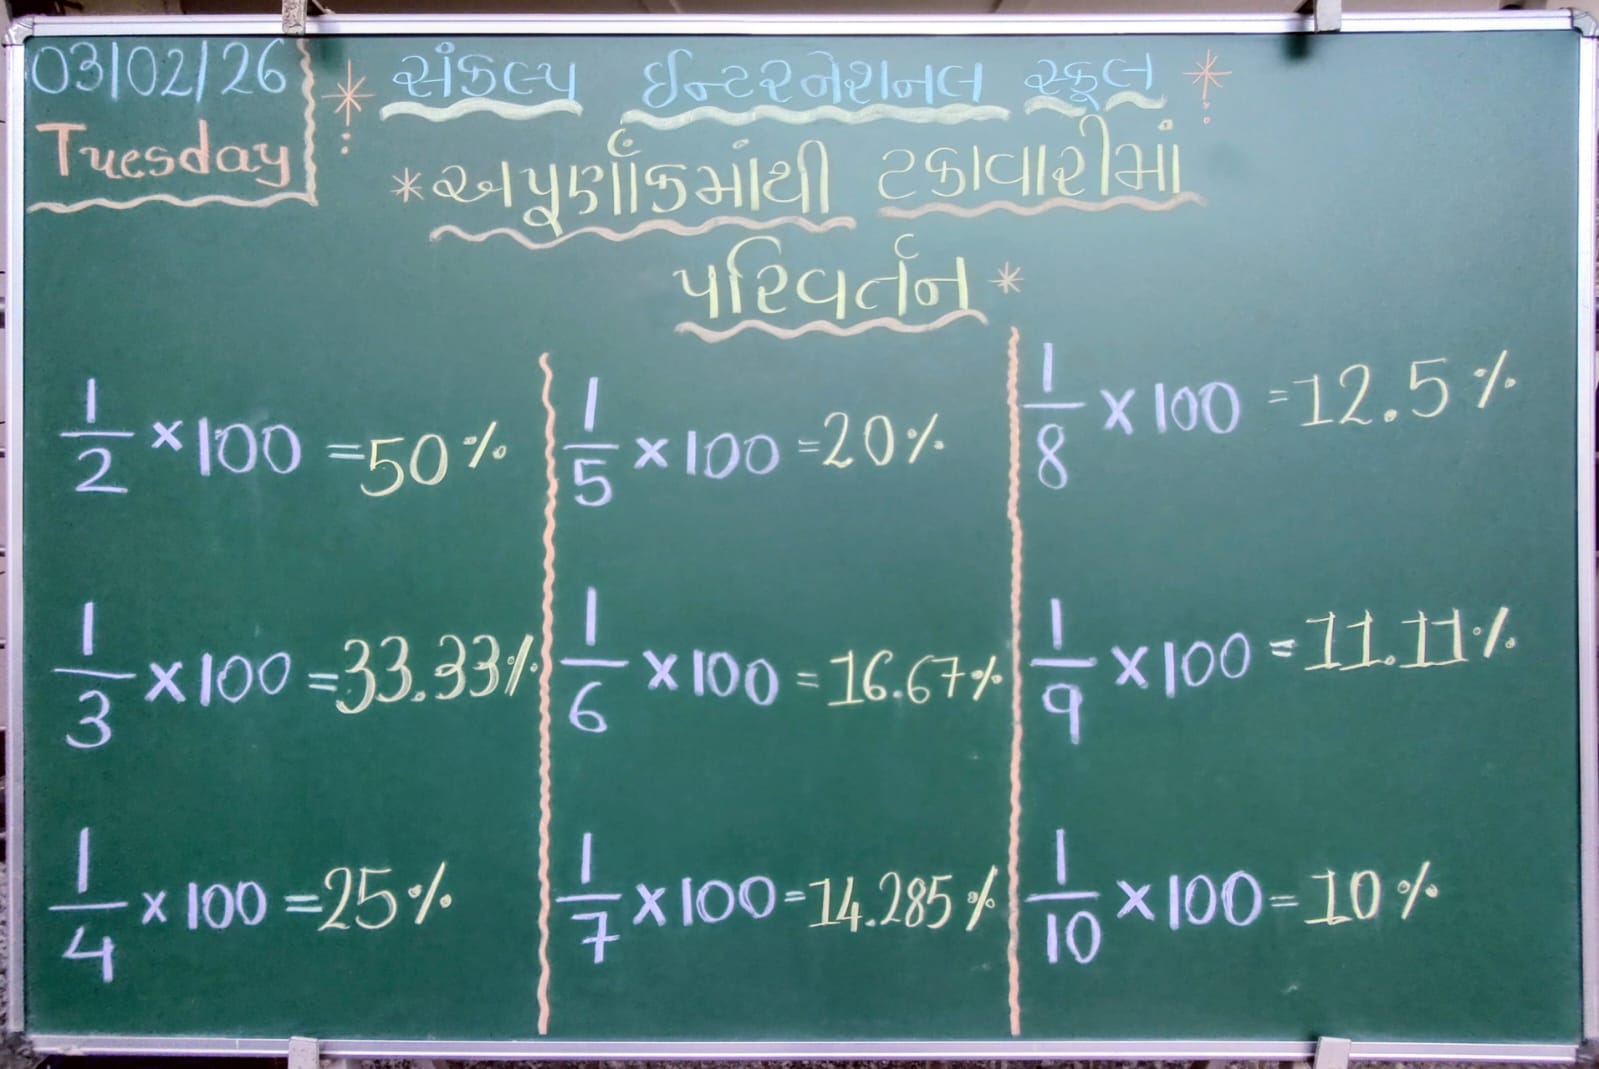 03/02/26
Tuesday
* સંકલ્પ ઈન્ટરનેશનલ સ્કૂલ *
* અપૂર્ણાંકમાંથી ટકાવારીમાં
પરિવર્તન *
1/2 × 100 = 50%
1/3 × 100 = 33.33%
1/4 × 100 = 25%
1/5 × 100 = 20%
1/6 × 100 = 16.67%
1/7 × 100 = 14.285%
1/8 × 100 = 12.5%
1/9 × 100 = 11.11%
1/10 × 100 = 10%